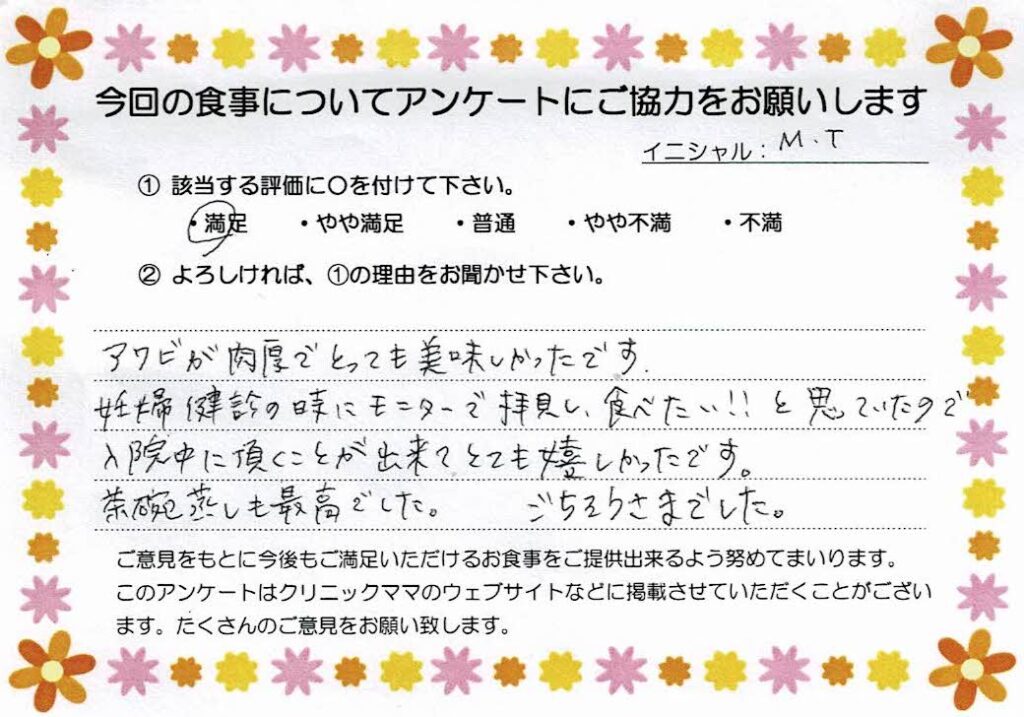 今回の食事についてアンケートにご協力をお願いします
イニシャル：M.T
① 該当する評価に〇を付けて下さい。
・満足 ・やや満足 ・普通 ・やや不満 ・不満
② よろしければ、①の理由をお聞かせ下さい。
アワビが肉厚でとっても美味しかったです.
妊婦健診の時にモニターで拝見し、食べたい!!と思っていたので
入院中に頂くことが出来てとても嬉しかったです。
茶碗蒸しも最高でした。 ごちそうさまでした。
ご意見をもとに今後もご満足いただけるお食事をご提供出来るよう努めてまいります。
このアンケートはクリニックママのウェブサイトなどに掲載させていただくことがござい
ます。たくさんのご意見をお願い致します。